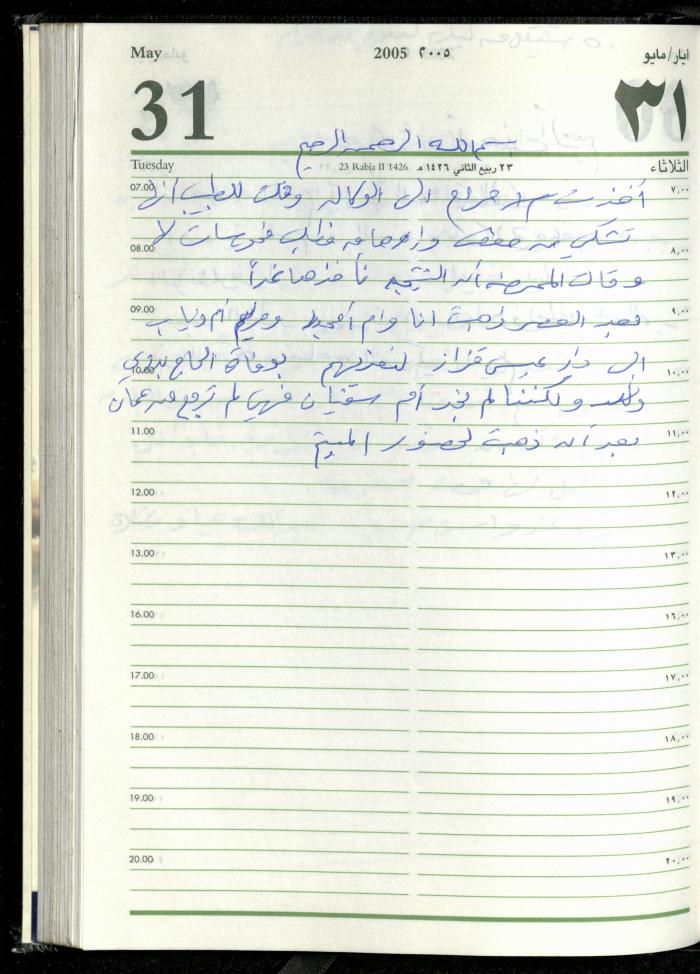 May 2005 ٢٠٠٥ ايار/مايو
31 ٣١
بسم الله الرحمن الرحيم
Tuesday 23 Rabia II 1426 ٢٣ ربيع الثاني ١٤٢٦ هـ الثلاثاء
07.00 أخذت الى الوكالة وقلت للطبيب أنها ٧,٠٠
تشكي من ضعف فطلب فحوصات لا
08.00 ٨,٠٠
وقالت الممرضة أن النتيجة نأخذها غداً
09.00 بعد العصر ذهبت انا وام أمجد وام دياب ٩,٠٠
الى دار عيسى قزاز لنعزيهم بوفاة الحاج بدوي
10.00 ١٠,٠٠
ولكننا لم نجد أم سفيان فهي لم ترجع من عمان
11.00 بعد أن ذهبت لحضور الميت ١١,٠٠
12.00 ١٢,٠٠
13.00 ١٣,٠٠
16.00 ١٦,٠٠
17.00 ١٧,٠٠
18.00 ١٨,٠٠
19.00 ١٩,٠٠
20.00 ٢٠,٠٠